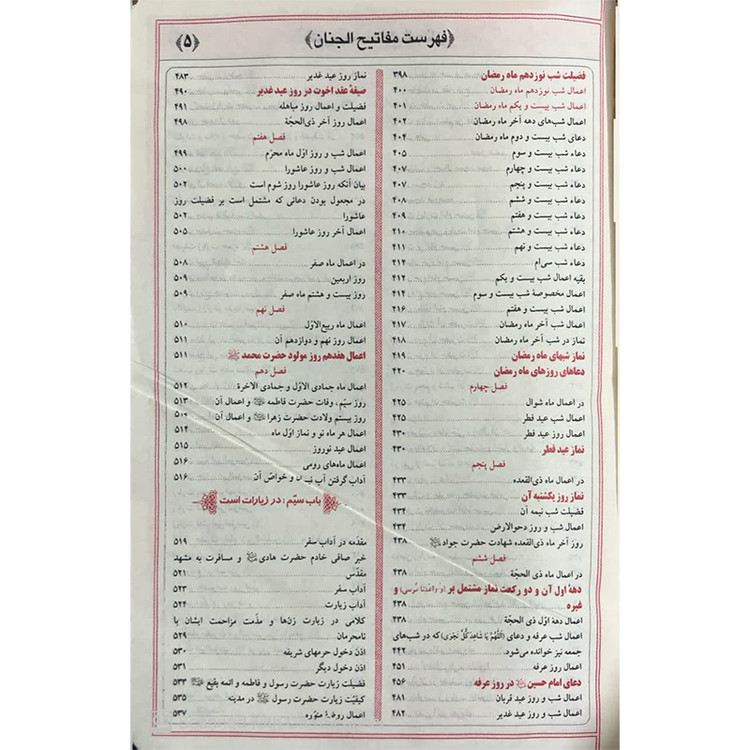 ﴿فهرست مفاتیح الجنان﴾
﴿۵﴾
فضیلت شب نوزدهم ماه رمضان ۳۹۸
اعمال شب نوزدهم ماه رمضان ۴۰۰
اعمال شب بیست و یکم ماه رمضان ۴۰۱
اعمال شب‌های دهه آخر ماه رمضان ۴۰۲
دعای شب بیست و دوم ماه رمضان ۴۰۴
دعاء شب بیست و سوم ۴۰۵
دعاء شب بیست و چهارم ۴۰۷
دعاء شب بیست و پنجم ۴۰۷
دعاء شب بیست و ششم ۴۰۸
دعاء شب بیست و هفتم ۴۰۹
دعاء شب بیست و هشتم ۴۱۰
دعاء شب بیست و نهم ۴۱۱
دعاء شب سی‌ام ۲۱۲
بقیه اعمال شب بیست و یکم ۴۱۲
اعمال مخصوصهٔ شب بیست و سوم ۴۱۴
اعمال شب بیست و هفتم ۴۱۶
اعمال شب آخر ماه رمضان ۴۱۷
نماز در شب آخر ماه رمضان ۴۱۸
نماز شبهای ماه رمضان ۴۱۹
دعاهای روزهای ماه رمضان ۴۲۰
فصل چهارم
در اعمال ماه شوال ۴۲۵
اعمال شب عید فطر ۴۲۵
اعمال روز عید فطر ۴۳۰
نماز عید فطر ۴۳۰
فصل پنجم
در اعمال ماه ذی‌القعده ۴۳۳
نماز روز یکشنبه آن ۴۳۳
فضیلت شب نیمه آن ۴۳۴
اعمال شب و روز دحوالارض ۴۳۴
روز آخر ماه ذی‌القعده شهادت حضرت جواد ۴۳۸
فصل ششم
در اعمال ماه ذی الحجّة ۴۳۸
دههٔ اول آن و دو رکعت نماز مشتمل بر (و واعدنا موسی) و
غیره ۴۳۸
اعمال دههٔ اوّل ذی الحجة ۴۳۸
اعمال شب عرفه و دعای (اللّهُمَّ یا شاهِدَ کُلِّ نَجْوی) که در شب‌های
جمعه نیز خوانده می‌شود. ۴۴۲
اعمال روز عرفه ۴۵۱
دعای امام حسین در روز عرفه ۴۵۶
اعمال شب و روز عید قربان ۴۸۱
اعمال شب و روز عید غدیر ۴۸۲
نماز روز عید غدیر ۴۸۳
صیغهٔ عقد اخوت در روز عید غدیر ۴۹۰
فضیلت و اعمال روز مباهله ۴۹۱
اعمال روز آخر ذی‌الحجّة ۴۹۸
فصل هفتم
اعمال شب و روز اوّل ماه محرّم ۴۹۹
اعمال شب و روز عاشورا ۵۰۰
بیان آنکه روز عاشورا روز شوم است ۵۰۲
در مجعول بودن دعائی که مشتمل است بر فضیلت روز
عاشورا ۵۰۲
اعمال آخر روز عاشورا ۵۰۵
فصل هشتم
در اعمال ماه صفر ۵۰۸
روز اربعین ۵۰۹
روز بیست و هشتم ماه صفر ۵۰۹
فصل نهم
اعمال ماه ربیع‌الاوّل ۵۱۰
اعمال روز نهم و دوازدهم آن ۵۱۱
اعمال هفدهم روز مولود حضرت محمد ۵۱۱
فصل دهم
اعمال ماه جمادی الاوّل و جمادی الاخرة ۵۱۲
روز سیّم، وفات حضرت فاطمه و اعمال آن ۵۱۳
روز بیستم ولادت حضرت زهرا و اعمال آن
اعمال هر ماه نو و نماز اوّل ماه ۵۱۴
اعمال عید نوروز ۵۱۵
اعمال ماه‌های رومی ۵۱۶
آداب گرفتن آب و خواصّ آن ۵۱۶
باب سیّم: در زیارات است
مقدّمه در آداب سفر ۵۱۹
خبر صافی خادم حضرت هادی و مسافرت به مشهد
مقدّس ۵۲۱
آداب سفر ۵۲۳
آداب زیارت ۵۲۴
کلامی در زیارت زن‌ها و مذمّت مزاحمت ایشان با
نامحرمان ۵۲۹
اذن دخول حرمهای شریفه ۵۳۰
اذن دخول دیگر ۵۳۱
فضیلت زیارت حضرت رسول و فاطمه و ائمه بقیع ۵۳۳
کیفیّت زیارت حضرت رسول در مدینه ۵۳۵
اعمال روضهٔ منوّره ۵۳۷